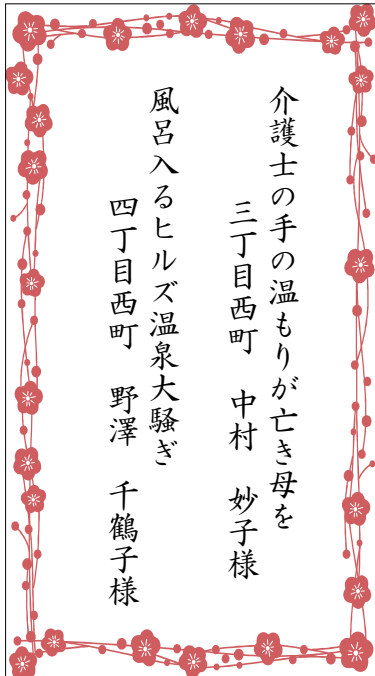 介護士の手の温もりが亡き母を
三丁目西町　中村　妙子様
風呂入るヒルズ温泉大騒ぎ
四丁目西町　野澤　千鶴子様